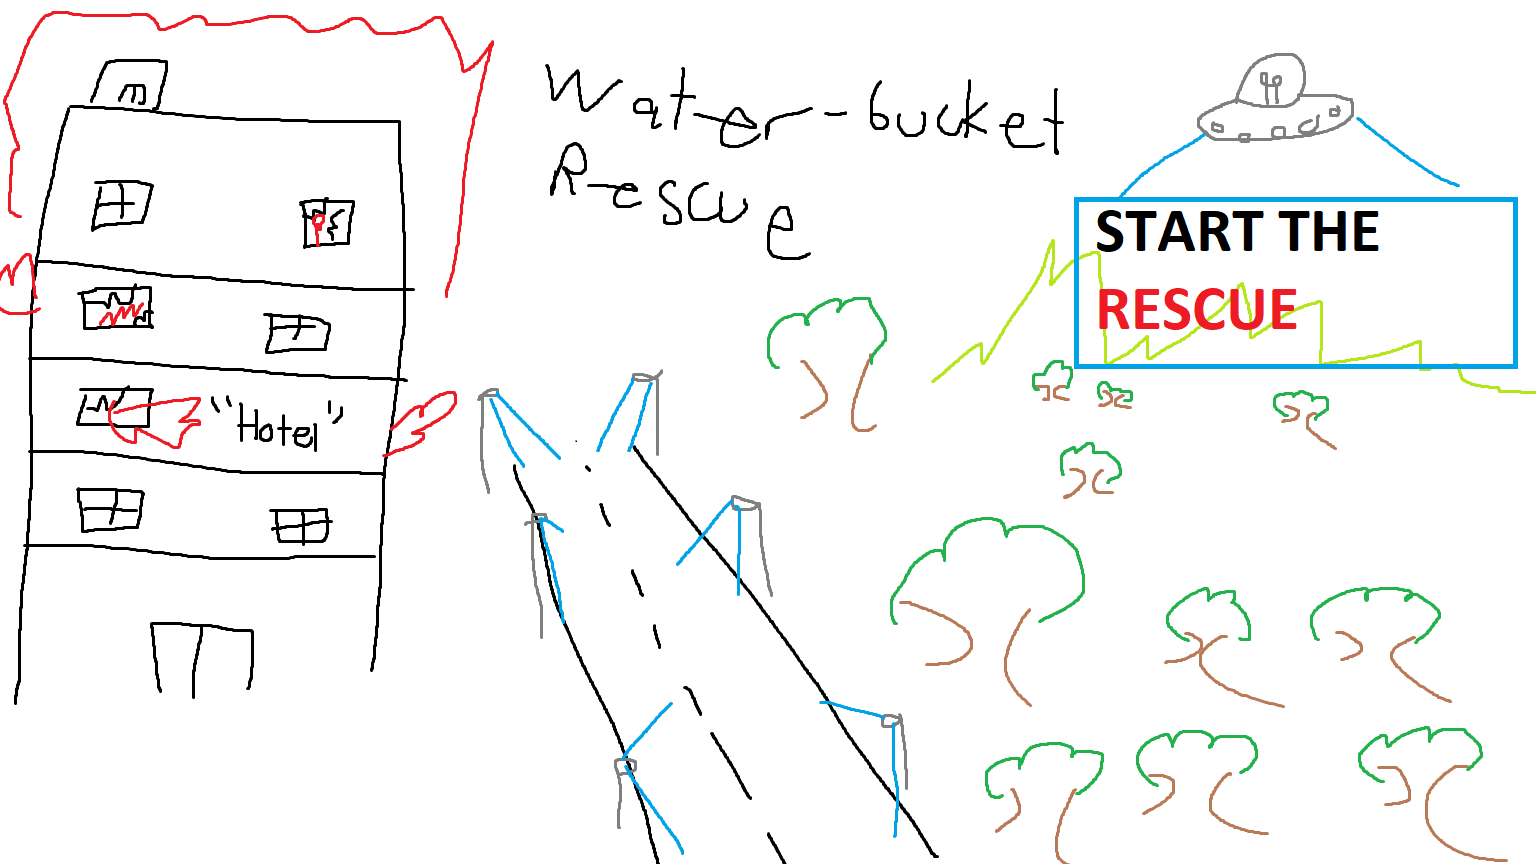 Water-bucket
Rescue
START THE
RESCUE
"Hotel"